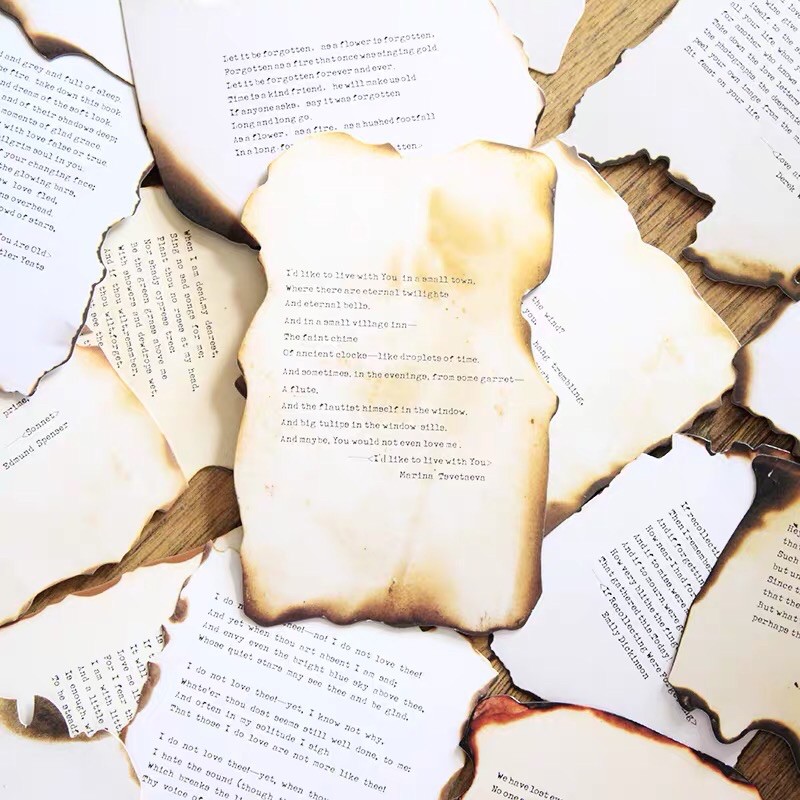 Let it be forgotten, as a flower is forgotten.
Forgotten as a fire that once was singing gold
Let it be forgotten forever and ever.
Time is a kind friend, he will make us old
If anyone asks, say it was forgotten
Long and long ago.
As a flower, as a fire, as a hushed footfall
In a long-fo
tten.
and grey and full of sleep
he fire, take down this book
and dream of the soft look
and of their shadows deep;
moments of glad grace
with love false or true
pilgrim soul in you
f your changing face;
the glowing bars,
w love fled,
ns overhead.
owd of stars.
You Are Old>
tler Yeats
wine
itself to the
all your life, whom
for another, who
Take down the love letters
the photographs, the desperate
peel your own image from the
Sit. Feast on your life.
—<Love a
Derek W
When I am dead,my dearest,
Sing no sad songs for me;
Plant thou no roses at my head,
Nor shady cypress tree:
Be the green grass above me
With showers and dewdrops wet,
And if thou wilt,remember,
if thou wilt,forget.
see the
prime,
—<Sonnet>
Edmund Spenser
I'd like to live with You in a small town,
Where there are eternal twilights
And eternal bells.
And in a small village inn—
The faint chime
Of ancient clocks—like droplets of time.
And sometimes, in the evenings, from some garret—
A flute,
And the flautist himself in the window.
And big tulips in the window sills.
And maybe, You would not even love me.
—<I'd like to live with You>
Marina Tsvetaeva
the wind?
you.
hang trembling,
If recollecti
Then I remember
And if forgetting
How near I had for
And if to miss were
And if to mourn were
How very blithe the fing
That gathered this Today
—<If Recollecting Were Forgetting>
Emily Dickinson
Hey
that
Such
but un
Since t
that the
But what
perhaps th
If it
Love me
For I fear
I am with
And a little
Is enough, w
To be stead
I do not love thee!—no! I do not love thee!
And yet when thou art absent I am sad;
And envy even the bright blue sky above thee,
Whose quiet stars may see thee and be glad.
I do not love thee!—yet, I know not why,
Whate'er thou dost seems still well done, to me:
And often in my solitude I sigh
That those I do love are not more like thee!
I do not love thee!—yet, when thou
I hate the sound (though th
Which breaks the li
Thy voice of
We have lost ev
No one